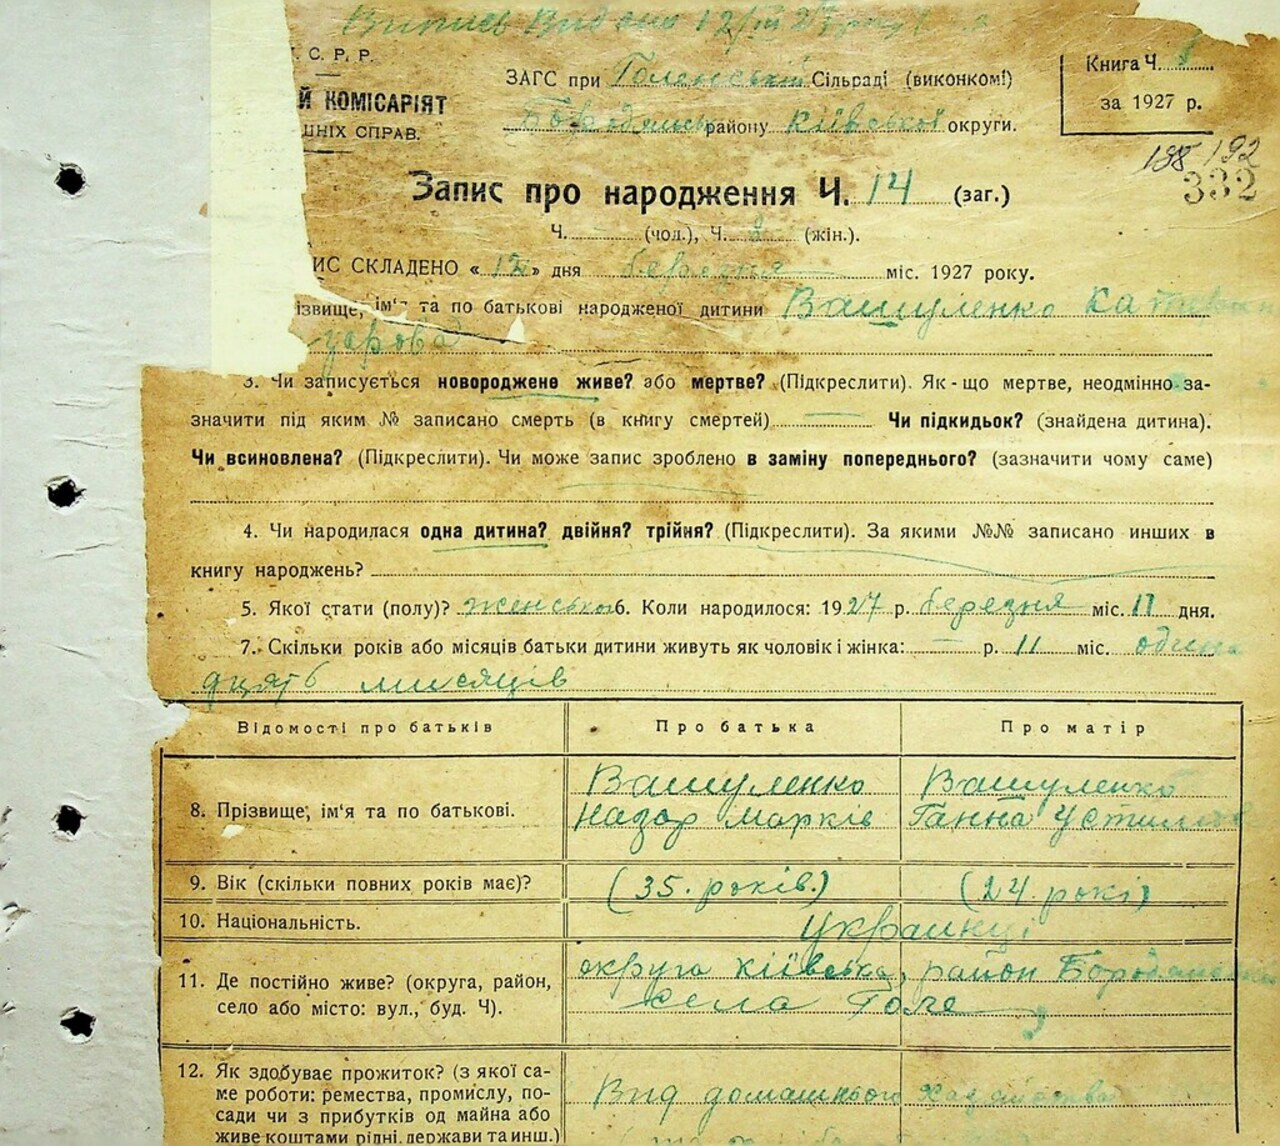 Випись Видано 12/III 27 року
. С. Р. Р.
ЗАГС при Голенській Сільраді (виконкомі)
Книга Ч.
Й КОМІСАРІЯТ
за 1927 р.
ШНІХ СПРАВ.
Бородянськ району київської округи.
188 192
332
Запис про народження Ч. 14 (заг.)
Ч. (чол.), Ч. 8 (жін.).
ИС СКЛАДЕНО « » дня березня міс. 1927 року.
ізвище, ім'я та по батькові народженої дитини Вашуленко Катерин
3. Чи записується новороджене живе? або мертве? (Підкреслити). Як-що мертве, неодмінно за-
значити під яким № записано смерть (в книгу смертей) Чи підкидьок? (знайдена дитина).
Чи всиновлена? (Підкреслити). Чи може запис зроблено в заміну попереднього? (зазначити чому саме)
4. Чи народилася одна дитина? двійня? трійня? (Підкреслити). За якими №№ записано инших в
книгу народжень?
5. Якої стати (полу)? женської 6. Коли народилося: 1927 р. березня міс. 11 дня.
7. Скільки років або місяців батьки дитини живуть як чоловік і жінка: — р. 11 міс. одина
дцять мисяців
Відомості про батьків Про батька Про матір
8. Прізвище, ім'я та по батькові.
Вашуленко Вашуленко
Назар Марків Ганна Устим
9. Вік (скільки повних років має)? (35. років.) (24. рокі)
10. Національність. Украинці
11. Де постійно живе? (округа, район,
село або місто: вул., буд. Ч).
округа київська, район Бородянськ
села Голе
12. Як здобуває прожиток? (з якої са-
ме роботи: ремества, промислу, по-
сади чи з прибутків од майна або
живе коштами рідні, держави та инш.)
Вид домашнього хазяйства